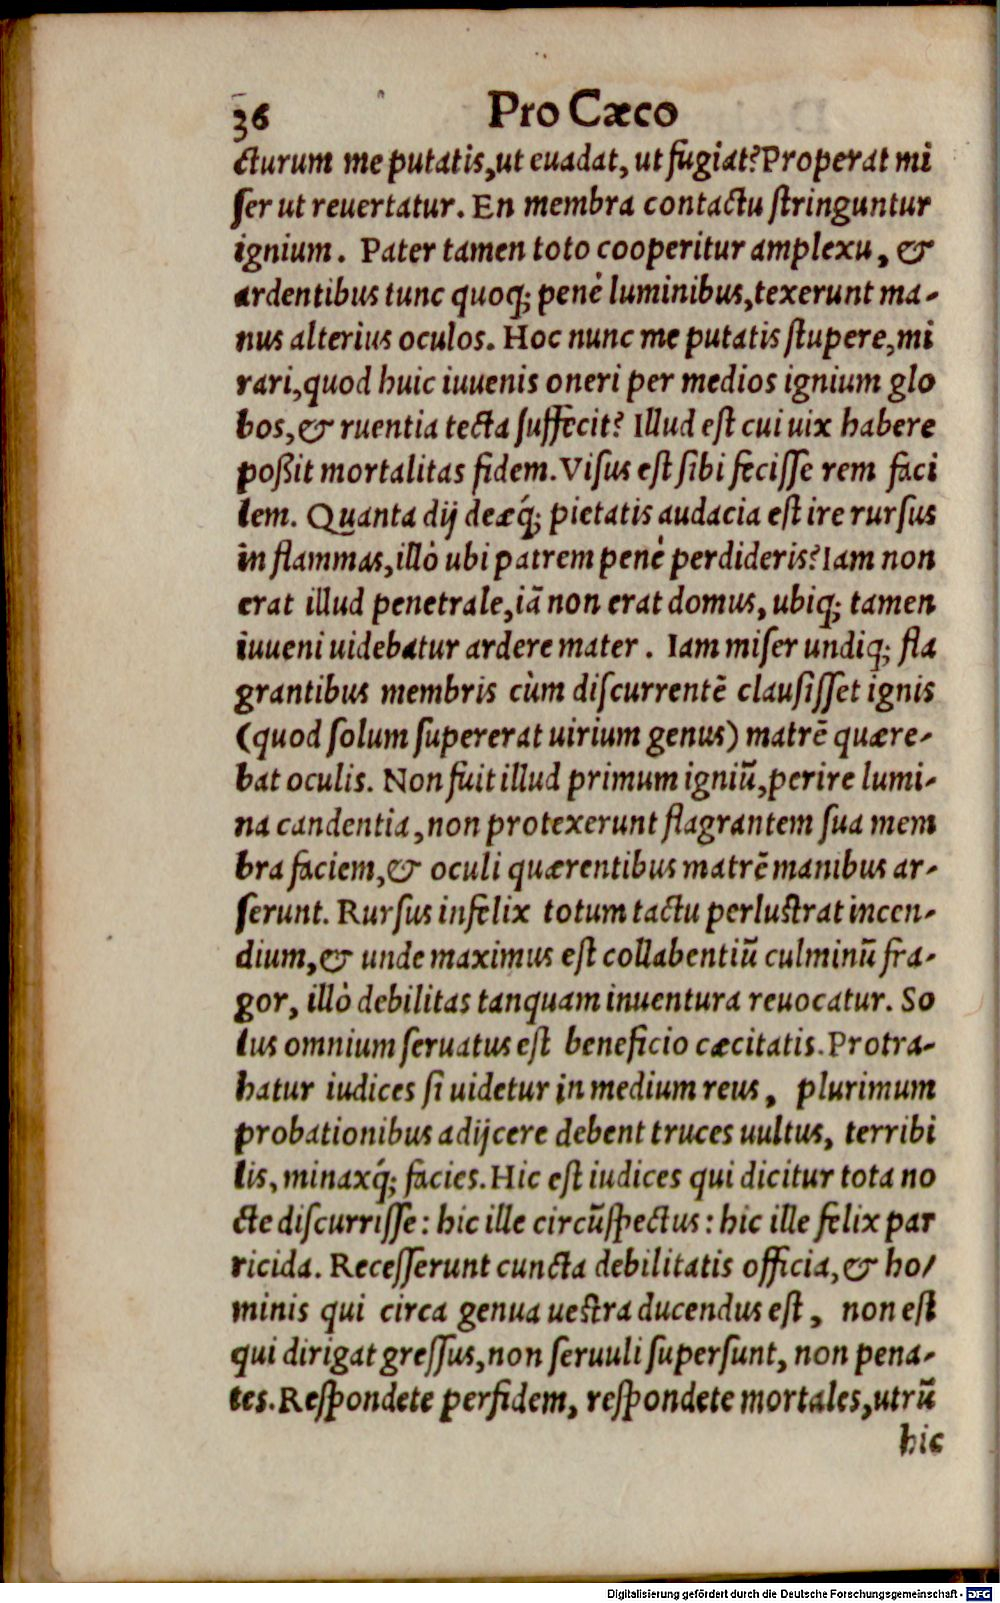 36 Pro Cæco
cturum me putatis, ut euadat, ut fugiat? Properat mi
ſer ut reuertatur. En membra contactu ſtringuntur
ignium. Pater tamen toto cooperitur amplexu, &
ardentibus tunc quoq; penè luminibus, texerunt ma-
nus alterius oculos. Hoc nunc me putatis ſtupere, mi
rari, quod huic iuuenis oneri per medios ignium glo
bos, & ruentia tecta ſuffecit? Illud eſt cui uix habere
poßit mortalitas fidem. Viſus eſt ſibi feciſſe rem faci
lem. Quanta dij deæq́; pietatis audacia eſt ire rurſus
in flammas, illò ubi patrem penè perdideris? Iam non
erat illud penetrale, iã non erat domus, ubiq; tamen
iuueni uidebatur ardere mater. Iam miſer undiq; fla
grantibus membris cùm diſcurrentẽ clauſiſſet ignis
(quod ſolum ſupererat uirium genus) matrẽ quære-
bat oculis. Non fuit illud primum igniũ, perire lumi-
na candentia, non protexerunt flagrantem ſua mem
bra faciem, & oculi quærentibus matrẽ manibus ar-
ſerunt. Rurſus infelix totum tactu perluſtrat incen-
dium, & unde maximus eſt collabentiũ culminũ fra-
gor, illò debilitas tanquam inuentura reuocatur. So
lus omnium ſeruatus eſt beneficio cæcitatis. Protra-
hatur iudices ſi uidetur in medium reus, plurimum
probationibus adijcere debent truces uultus, terribi
lis, minaxq́; facies. Hic eſt iudices qui dicitur tota no
cte diſcurriſſe: hic ille circũſpectus: hic ille felix par
ricida. Receſſerunt cuncta debilitatis officia, & ho/
minis qui circa genua ueſtra ducendus eſt, non eſt
qui dirigat greſſus, non ſeruuli ſuperſunt, non pena-
tes. Reſpondete perfidem, reſpondete mortales, utrũ
hic
Digitalisierung gefördert durch die Deutsche Forschungsgemeinschaft - DFG